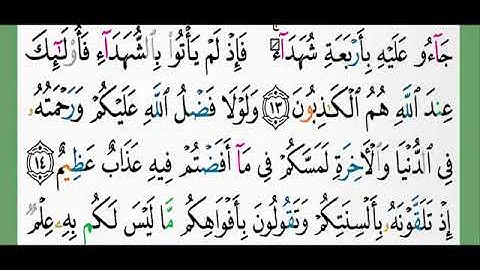 جَآءُو عَلَيْهِ بِأَرْبَعَةِ شُهَدَآءَۚ فَإِذْ لَمْ يَأْتُوا۟ بِٱلشُّهَدَآءِ فَأُو۟لَـٰٓئِكَ
عِندَ ٱللَّهِ هُمُ ٱلْكَـٰذِبُونَ ١٣ وَلَوْلَا فَضْلُ ٱللَّهِ عَلَيْكُمْ وَرَحْمَتُهُۥ
فِى ٱلدُّنْيَا وَٱلْـَٔاخِرَةِ لَمَسَّكُمْ فِى مَآ أَفَضْتُمْ فِيهِ عَذَابٌ عَظِيمٌ ١٤
إِذْ تَلَقَّوْنَهُۥ بِأَلْسِنَتِكُمْ وَتَقُولُونَ بِأَفْوَاهِكُم مَّا لَيْسَ لَكُم بِهِۦ عِلْمٌ